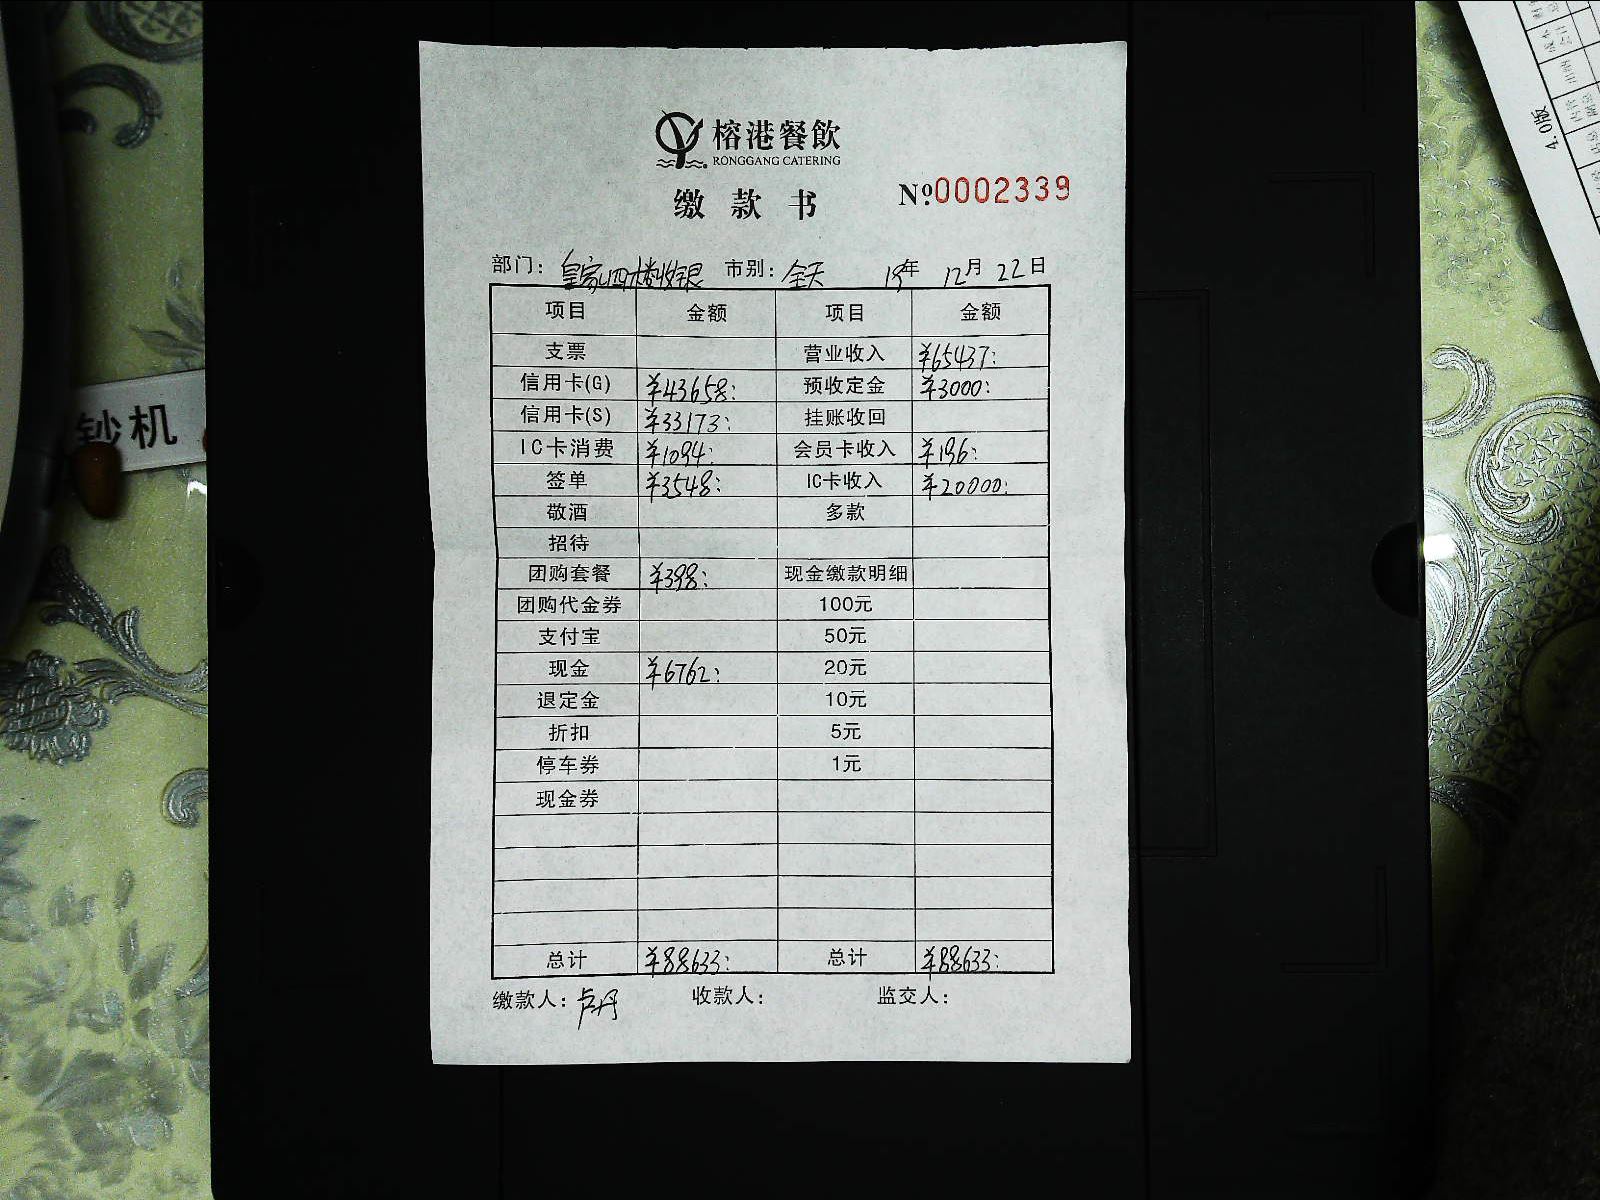 榕港餐飲
RONGGANG CATERING
缴款书
№.0002339
部门：皇家四楼收银 市别：全天 19年 12月 22日
项目 金额 项目 金额
支票 营业收入 ¥65437:
信用卡(G) ¥43658: 预收定金 ¥3000:
信用卡(S) ¥33173: 挂账收回
IC卡消费 ¥1094: 会员卡收入 ¥196:
签单 ¥3548: IC卡收入 ¥20000:
敬酒 多款
招待
团购套餐 ¥398: 现金缴款明细
团购代金券 100元
支付宝 50元
现金 ¥6762: 20元
退定金 10元
折扣 5元
停车券 1元
现金券
总计 ¥88633: 总计 ¥88633:
缴款人：卢丹 收款人： 监交人：
钞机
4.0版